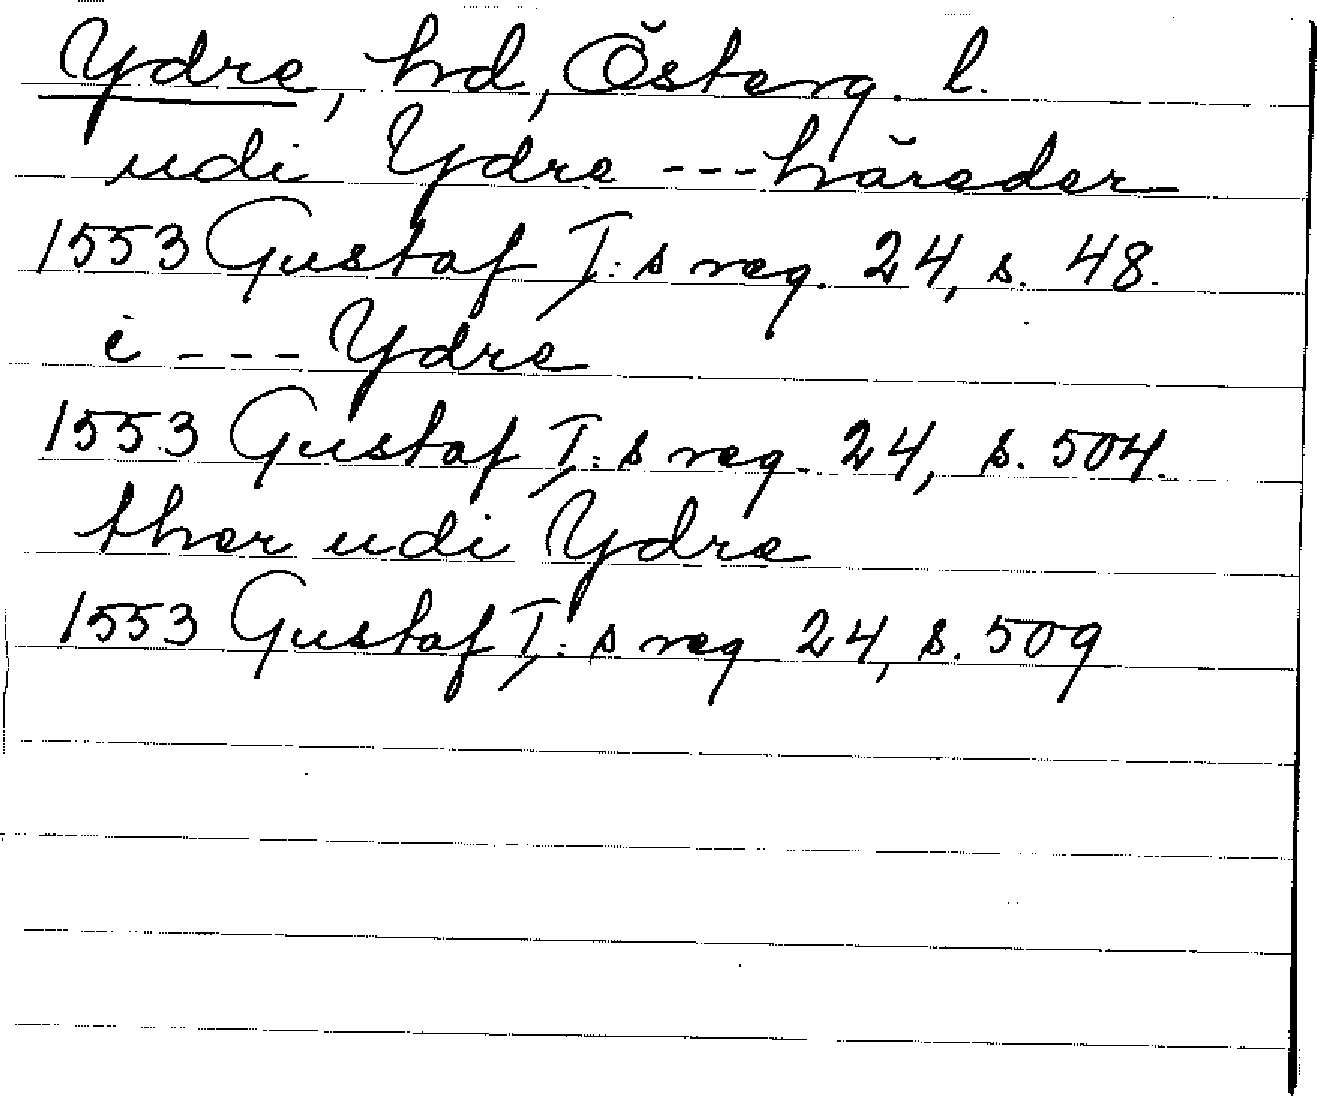 Ydre, hd, Österg. l.
udi Ydre --- häreder
1553 Gustaf I:s reg. 24, s. 48.
i --- Ydre
1553 Gustaf I:s reg. 24, s. 504.
ther udi Ydre
1553 Gustaf I:s reg 24, s. 509